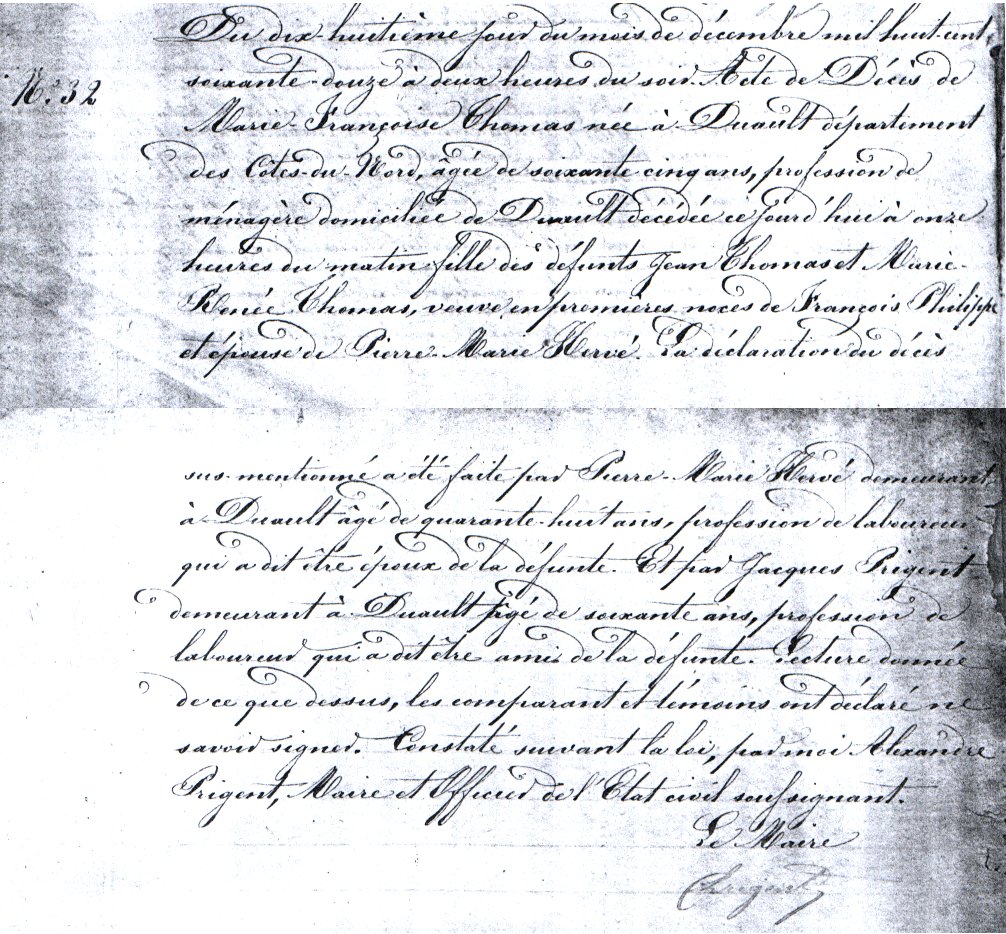 Du dix-huitième jour du mois de décembre mil huit cent
soixante-douze à deux heures du soir. Acte de Décès de
N° 32
Marie-Françoise Thomas née à Duault département
des Côtes-du-Nord, âgée de soixante cinq ans, profession de
ménagère domiciliée de Duault décédée ce jourd'hui à onze
heures du matin fille des défunts Jean Thomas et Marie-
Renée Thomas, veuve en premières noces de François Philippe
et épouse de Pierre-Marie Hervé. La déclaration du décès
sus-mentionné a été faite par Pierre-Marie Hervé demeurant
à Duault âgé de quarante-huit ans, profession de laboureur
qui a dit être époux de la défunte. Et par Jacques Prigent
demeurant à Duault âgé de soixante ans, profession de
laboureur qui a dit être ami de la défunte. Lecture donnée
de ce que dessus, les comparant et témoins ont déclaré ne
savoir signer. Constaté suivant la loi, par moi Alexandre
Prigent, Maire et Officier de l'Etat civil soussignant.
Le Maire
Prigent